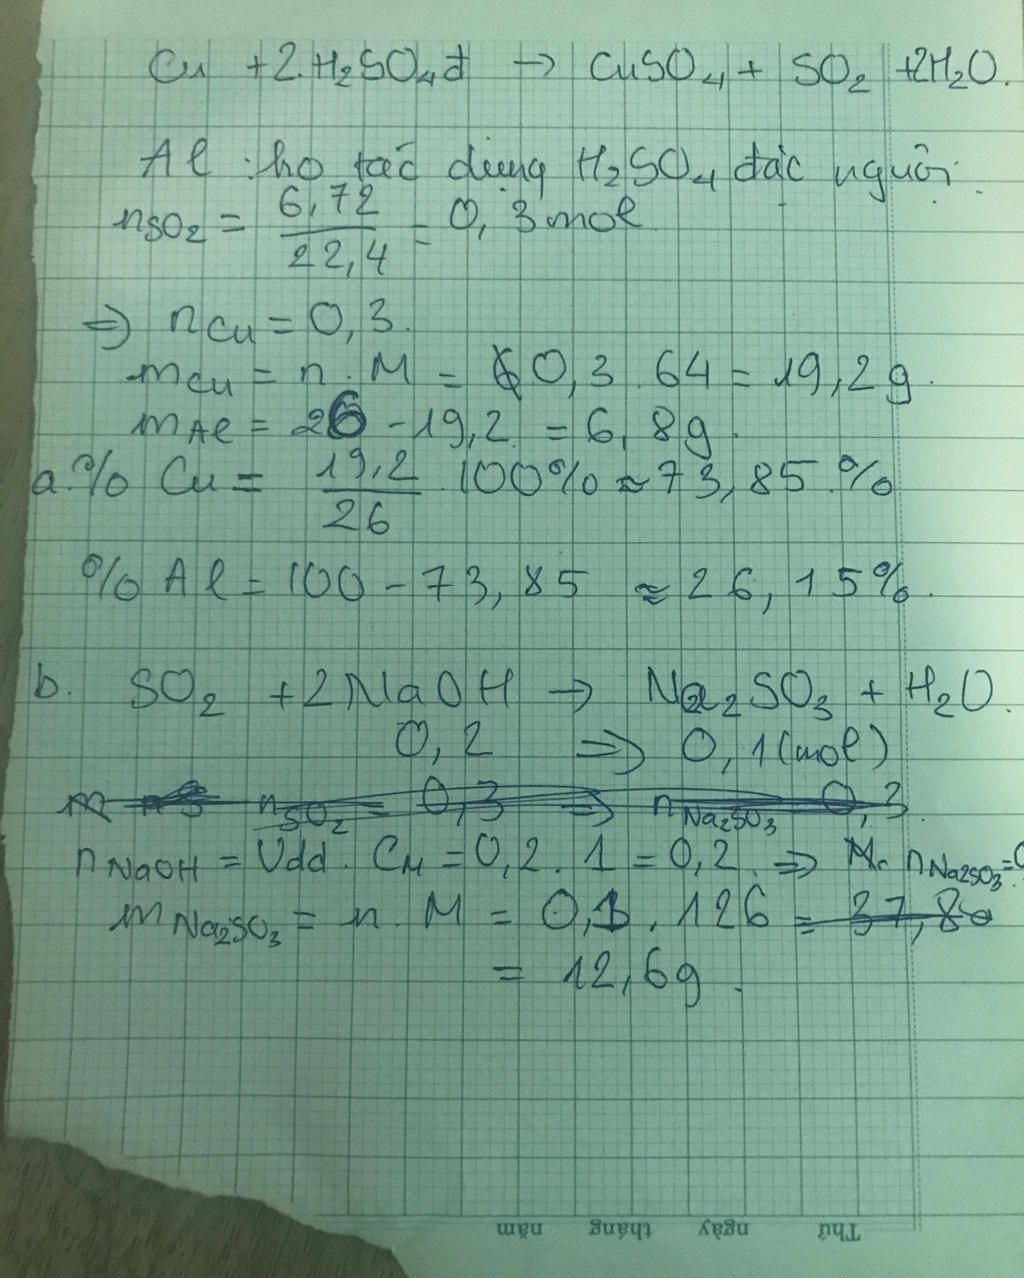 Cu + 2 H₂SO₄đ → CuSO₄ + SO₂ + 2H₂O.
Al : ko tác dụng H₂SO₄ đặc nguội.
nSO₂ = 6,72 / 22,4 = 0,3 mol
⇒ nCu = 0,3.
mCu = n . M = 0,3 . 64 = 19,2g.
mAl = 26 - 19,2 = 6,8g.
a. % Cu = 19,2 / 26 . 100% ≈ 73,85 %
% Al = 100 - 73,85 ≈ 26,15%.
b. SO₂ + 2NaOH → Na₂SO₃ + H₂O.
0,2 ⇒ 0,1 (mol)
nSO₂ = 0,3 ⇒ nNa₂SO₃ 0,3
nNaOH = Vdd . CM = 0,2 . 1 = 0,2 ⇒ nNa₂SO₃ = 0
mNa₂SO₃ = n . M = 0,1 . 126 = 37,80
= 12,6g.
Thứ ngày tháng năm